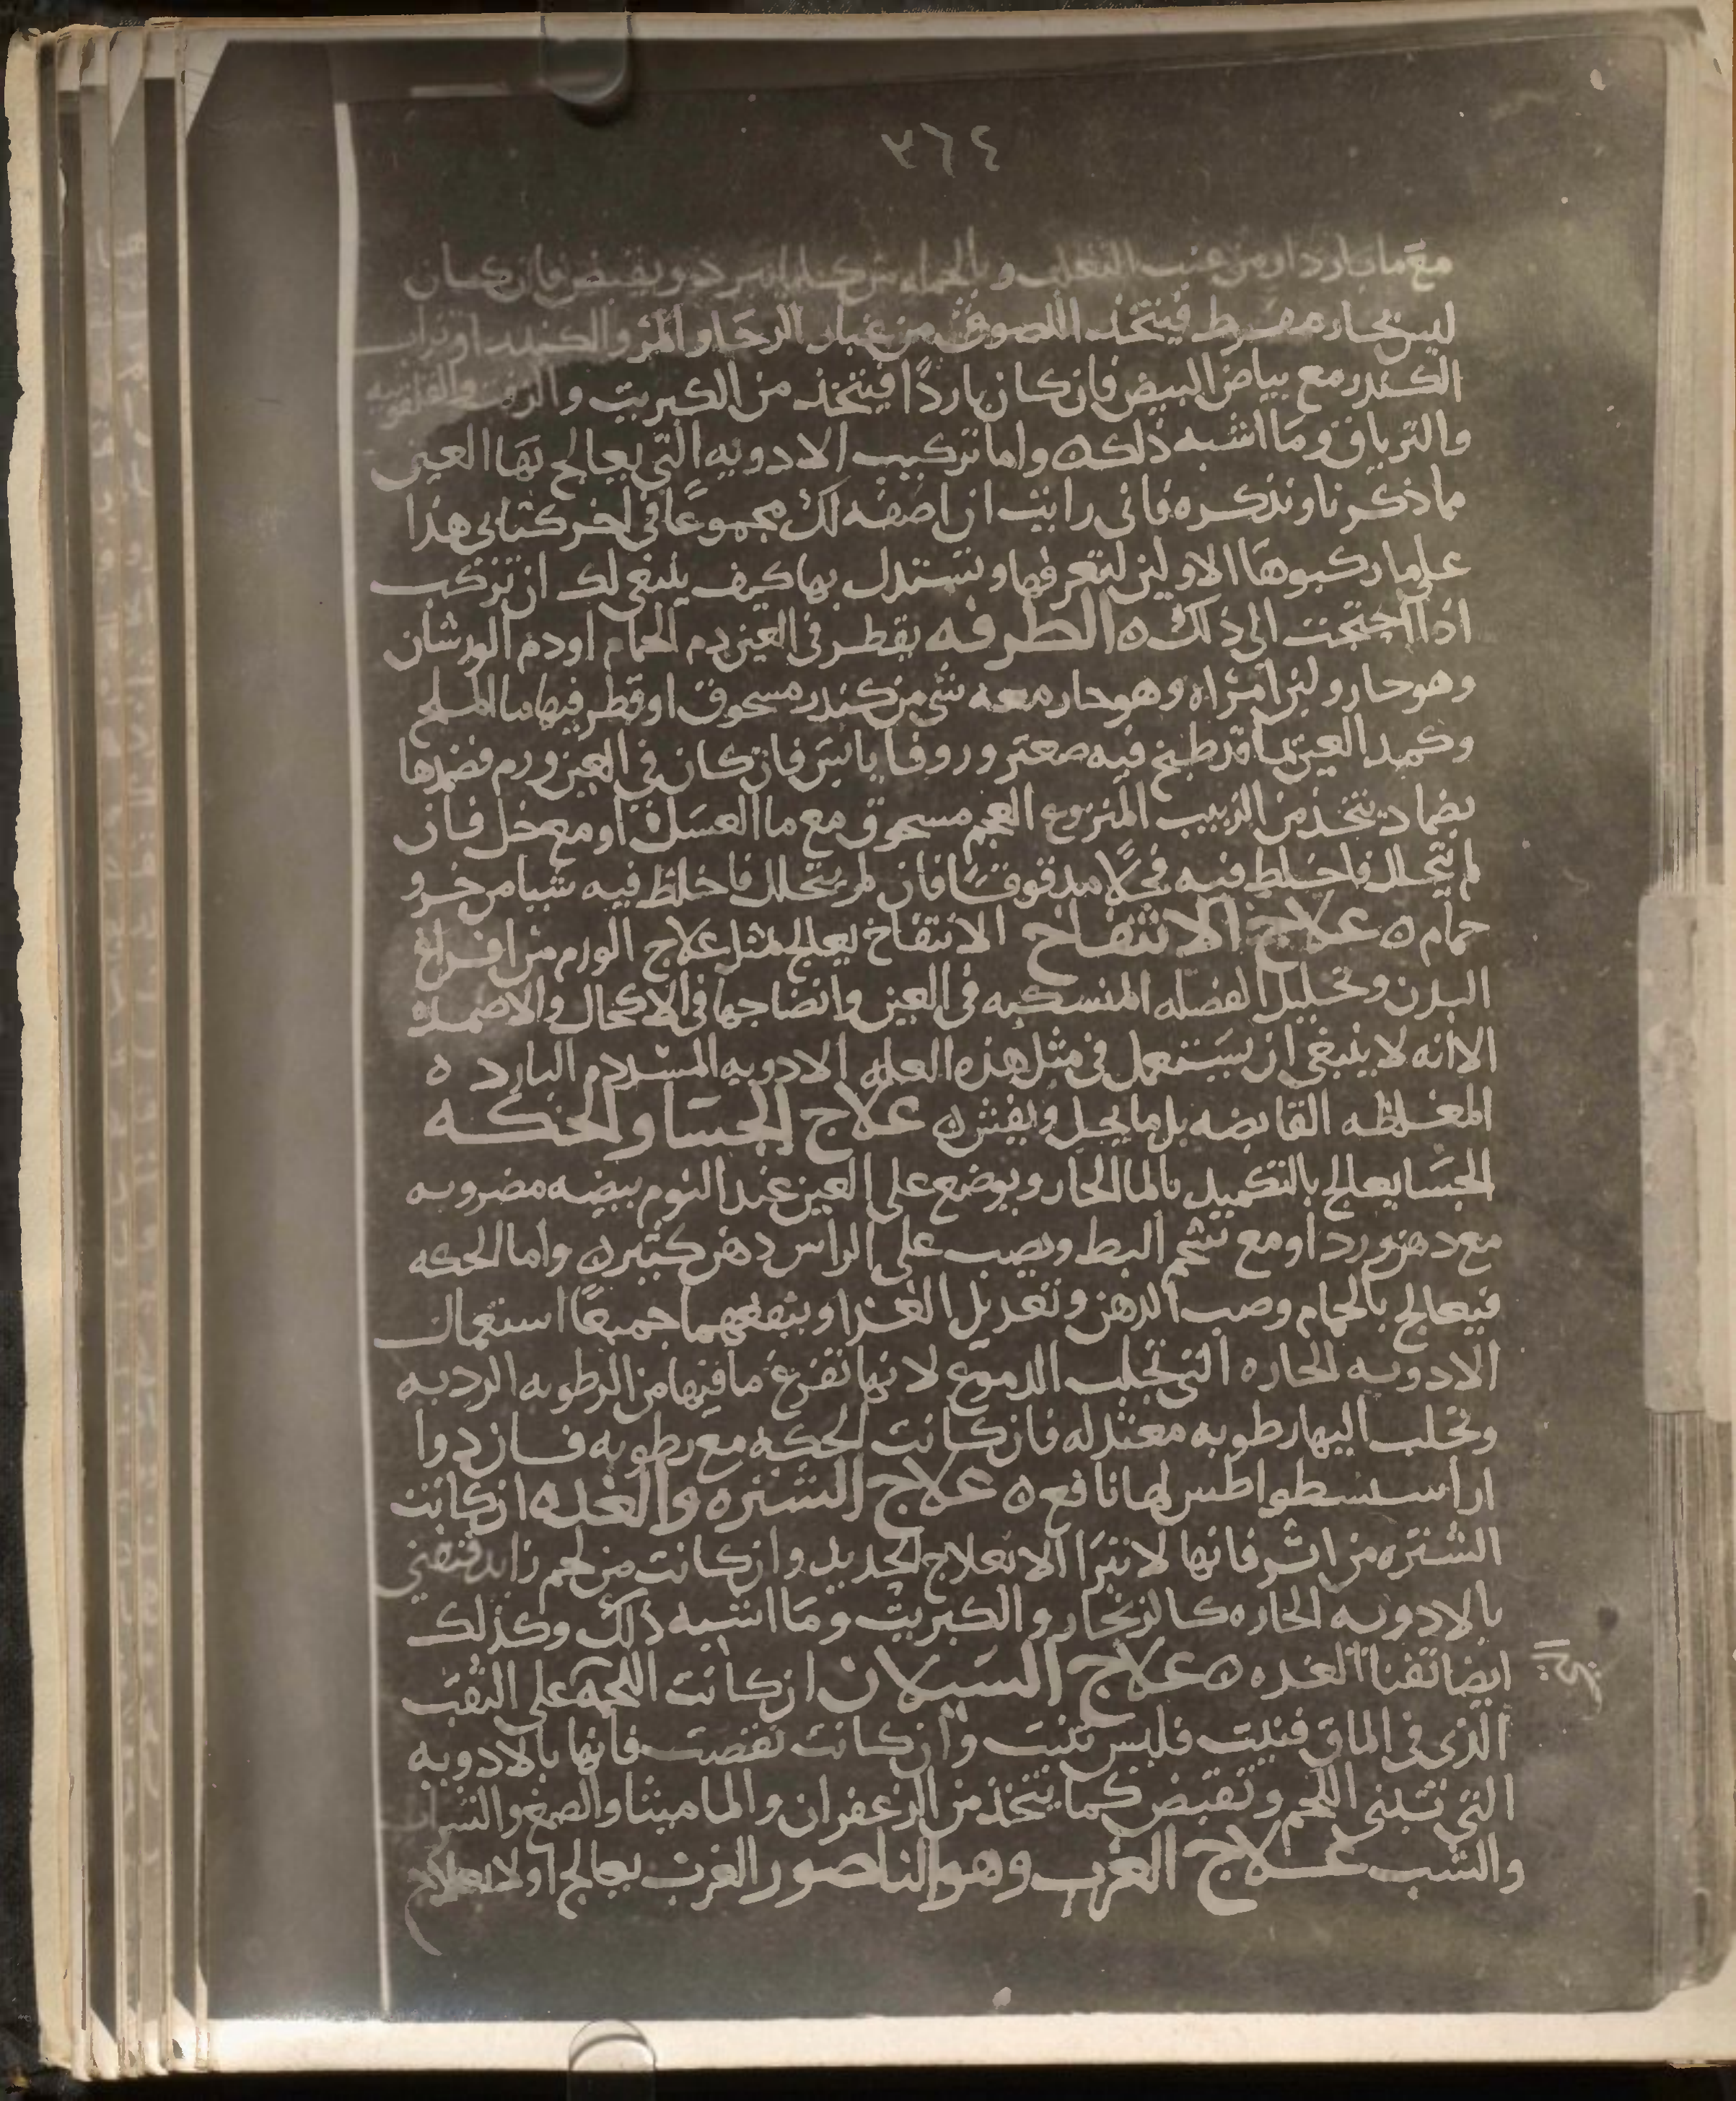 ٣٦٤
مع ما بارد او من عنب الثعلب و بالجمله من كلما يبرد ويقبض فان كان
ليس بحار مفرط فيتخذ اللصوق من غبار الرحا والمر والكندر او تراب
الكندر مع بياض البيض فان كان باردًا فيتخذ من الكبريت والزفت
والترياق وما اشبه ذلك ه واما تركيب الادويه التي يعالج بها العين
مما ذكرنا ونذكره فاني رايت ان اصفه لك مجموعًا في اخر كتابي هذا
على ما ركبوها الاولين لتعرفها وتستدل بها كيف ينبغي لك ان تركب
اذا احتجت الى ذلك ه الطرفه يقطر في العين دم الحمام او دم الورشان
وهو حار ولبن امراه وهو حار معه شي من كندر مسحوق او قطر فيها ما الملح
وكمد العين بما قد طبخ فيه صعتر وزوفا يابس فان كان في العين ورم فضمدها
بضماد يتخذ من الزبيب المنزوع العجم مسحوق مع ما العسل او مع خل فان
لم يتحلل فاخلط فيه فجلًا مدقوقًا فان لم يتحلل فاخلط فيه شيا من خرو
حمام ه علاج الانتفاخ الانتفاخ يعالج بمثل علاج الورم من افراغ
البدن وتحليل الفضله المنسكبه في العين وانضاجها في الاكحال والاضمده
الا انه لا ينبغي ان يستعمل في مثل هذه العله الادويه المسددم البارد ه
المغلظه القابضه بل ما يحل ويفش ه علاج الجسا والحكه
الجسا يعالج بالتكميد بالما الحار ويوضع على العين عند النوم بيضه مضروبه
مع دهن ورد او مع شحم البط ويصب على الراس دهن كثير ه واما الحكه
فيعالج بالحمام وصب الدهن وتعديل الغذا وينفعهما جميعًا استعمال
الادويه الحاره التي تجلب الدموع لانها تفرغ ما فيها من الرطوبه الرديه
وتجلب اليها رطوبه معتدله فان كانت الحكه مع رطوبه فان دوا
اراسسطواطس لها نافع ه علاج الشتره والغده ان كانت
الشتره من اثر فانها لا تبرا الا بعلاج الحديد وان كانت من لحم زايد فتفنى
بالادويه الحاره كالزنجار والكبريت وما اشبه ذلك وكذلك
ايضا تفنا الغده ه علاج السيلان ان كانت اللحمه على الثقب
الذي في الماق فنيت فليس تنبت وان كانت نقصت فانها بالادويه
التي تبني اللحم وتقبض كما يتخذ من الزعفران والماميثا والصمغ والشراب
والشب علاج الغرب وهو الناصور الغرب يعالج اولا بعلاج